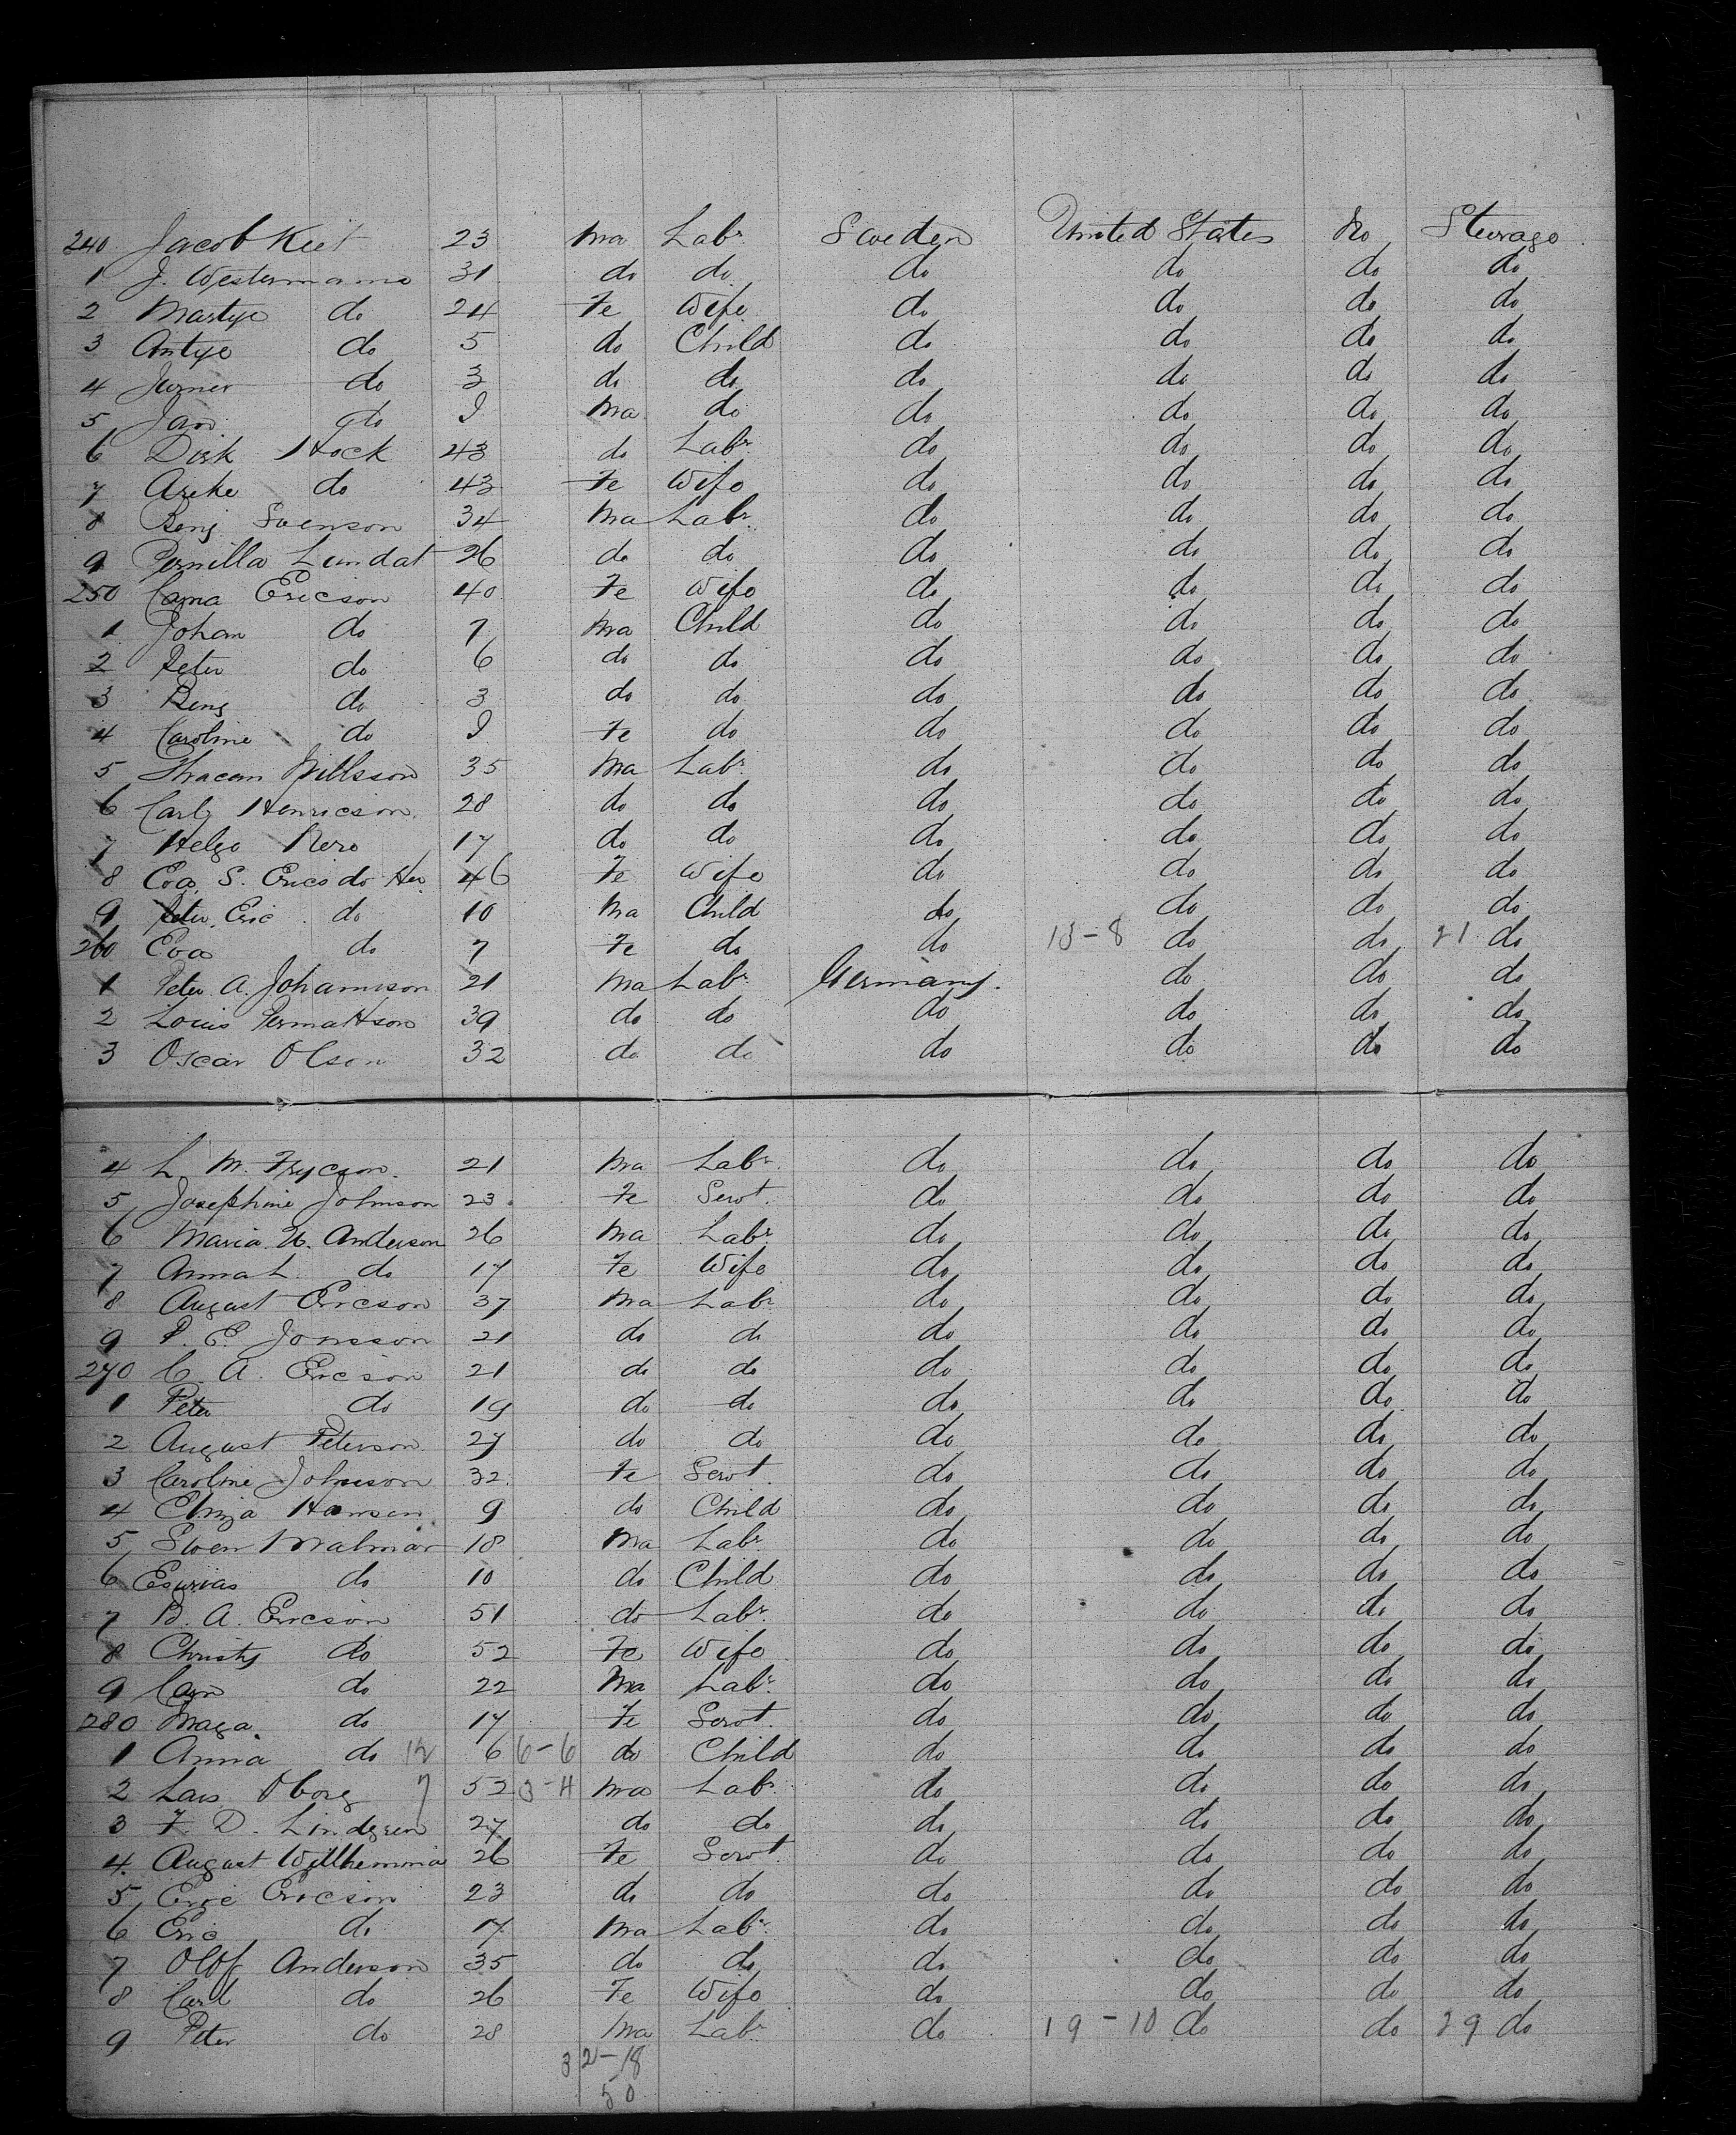 240 Jacob Kiet 23 Ma Labr Sweden United States No Steerage
1 J. Westermann 31 do do do do do do
2 Martye do 24 Fe Wife do do do do
3 Antye do 5 do Child do do do do
4 Jurner do 3 do do do do do do
5 Jan do Ma do do do do do
6 Dirk Hock 43 do Labr do do do do
7 Arike do 43 Fe Wife do do do do
8 Benj Svenson 34 Ma Labr do do do do
9 Pernilla Lundat 26 do do do do do do
250 Cama Ericson 40 Fe Wife do do do do
1 Johan do 7 Ma Child do do do do
2 Peter do 6 do do do do do do
3 Beng do 3 do do do do do do
4 Caroline do Fe do do do do do
5 35 Ma Labr do do do do
6 Carly Henricson 28 do do do do do do
7 Helgo Nero 17 do do do do do do
8 Eva S. Erics do Her 46 Fe Wife do do do do
9 Peter Eric do 10 Ma Child do do do do
260 Eva do 7 Fe do do 13-8 do do 21 do
1 Peter A. Johannson 21 Ma Labr Germany. do do do
2 Louis Permattson 39 do do do do do do
3 Oscar Olson 32 do do do do do do
4 L. M. Frycson 21 Ma Labr do do do do
5 Josephine Johnson 23 Fe Servt. do do do do
6 Maria U. Anderson 26 Ma Labr do do do do
7 Anna L. do 17 Fe Wife do do do do
8 August Ericson 37 Ma Labr do do do do
9 P. E. Jonsson 21 do do do do do do
270 C. A. Ericson 21 do do do do do do
1 Peter do 19 do do do do do do
2 August Peterson 27 do do do do do do
3 Caroline Johnson 32. Fe Servt. do do do do
4 Eliza Hansen 9 do Child do do do do
5 Sven Malmar 18 Ma Labr do do do do
6 Esurias do 10 do Child do do do do
7 B. A. Ericson 51 do Labr do do do do
8 Christy do 52 Fe Wife do do do do
9 Carn do 22 Ma Labr do do do do
280 Maga do 17 Fe Servt. do do do do
1 Anna do 12 6 6-6 do Child do do do do
2 Lars Oborg 7 52 3-4 Ma Labr do do do do
3 F. D. Lindgren 27 do do do do do do
4. August Willhemina 26 Fe Servt. do do do do
5 Eric Ericson 23 do do do do do do
6 Eric do 17 Ma Labr do do do do
7 Oloff Anderson 35 do do do do do do
8 Carl do 26 Fe Wife do do do do
9 Peter do 28 Ma Labr do 19-10 do do 29 do
32-18
50